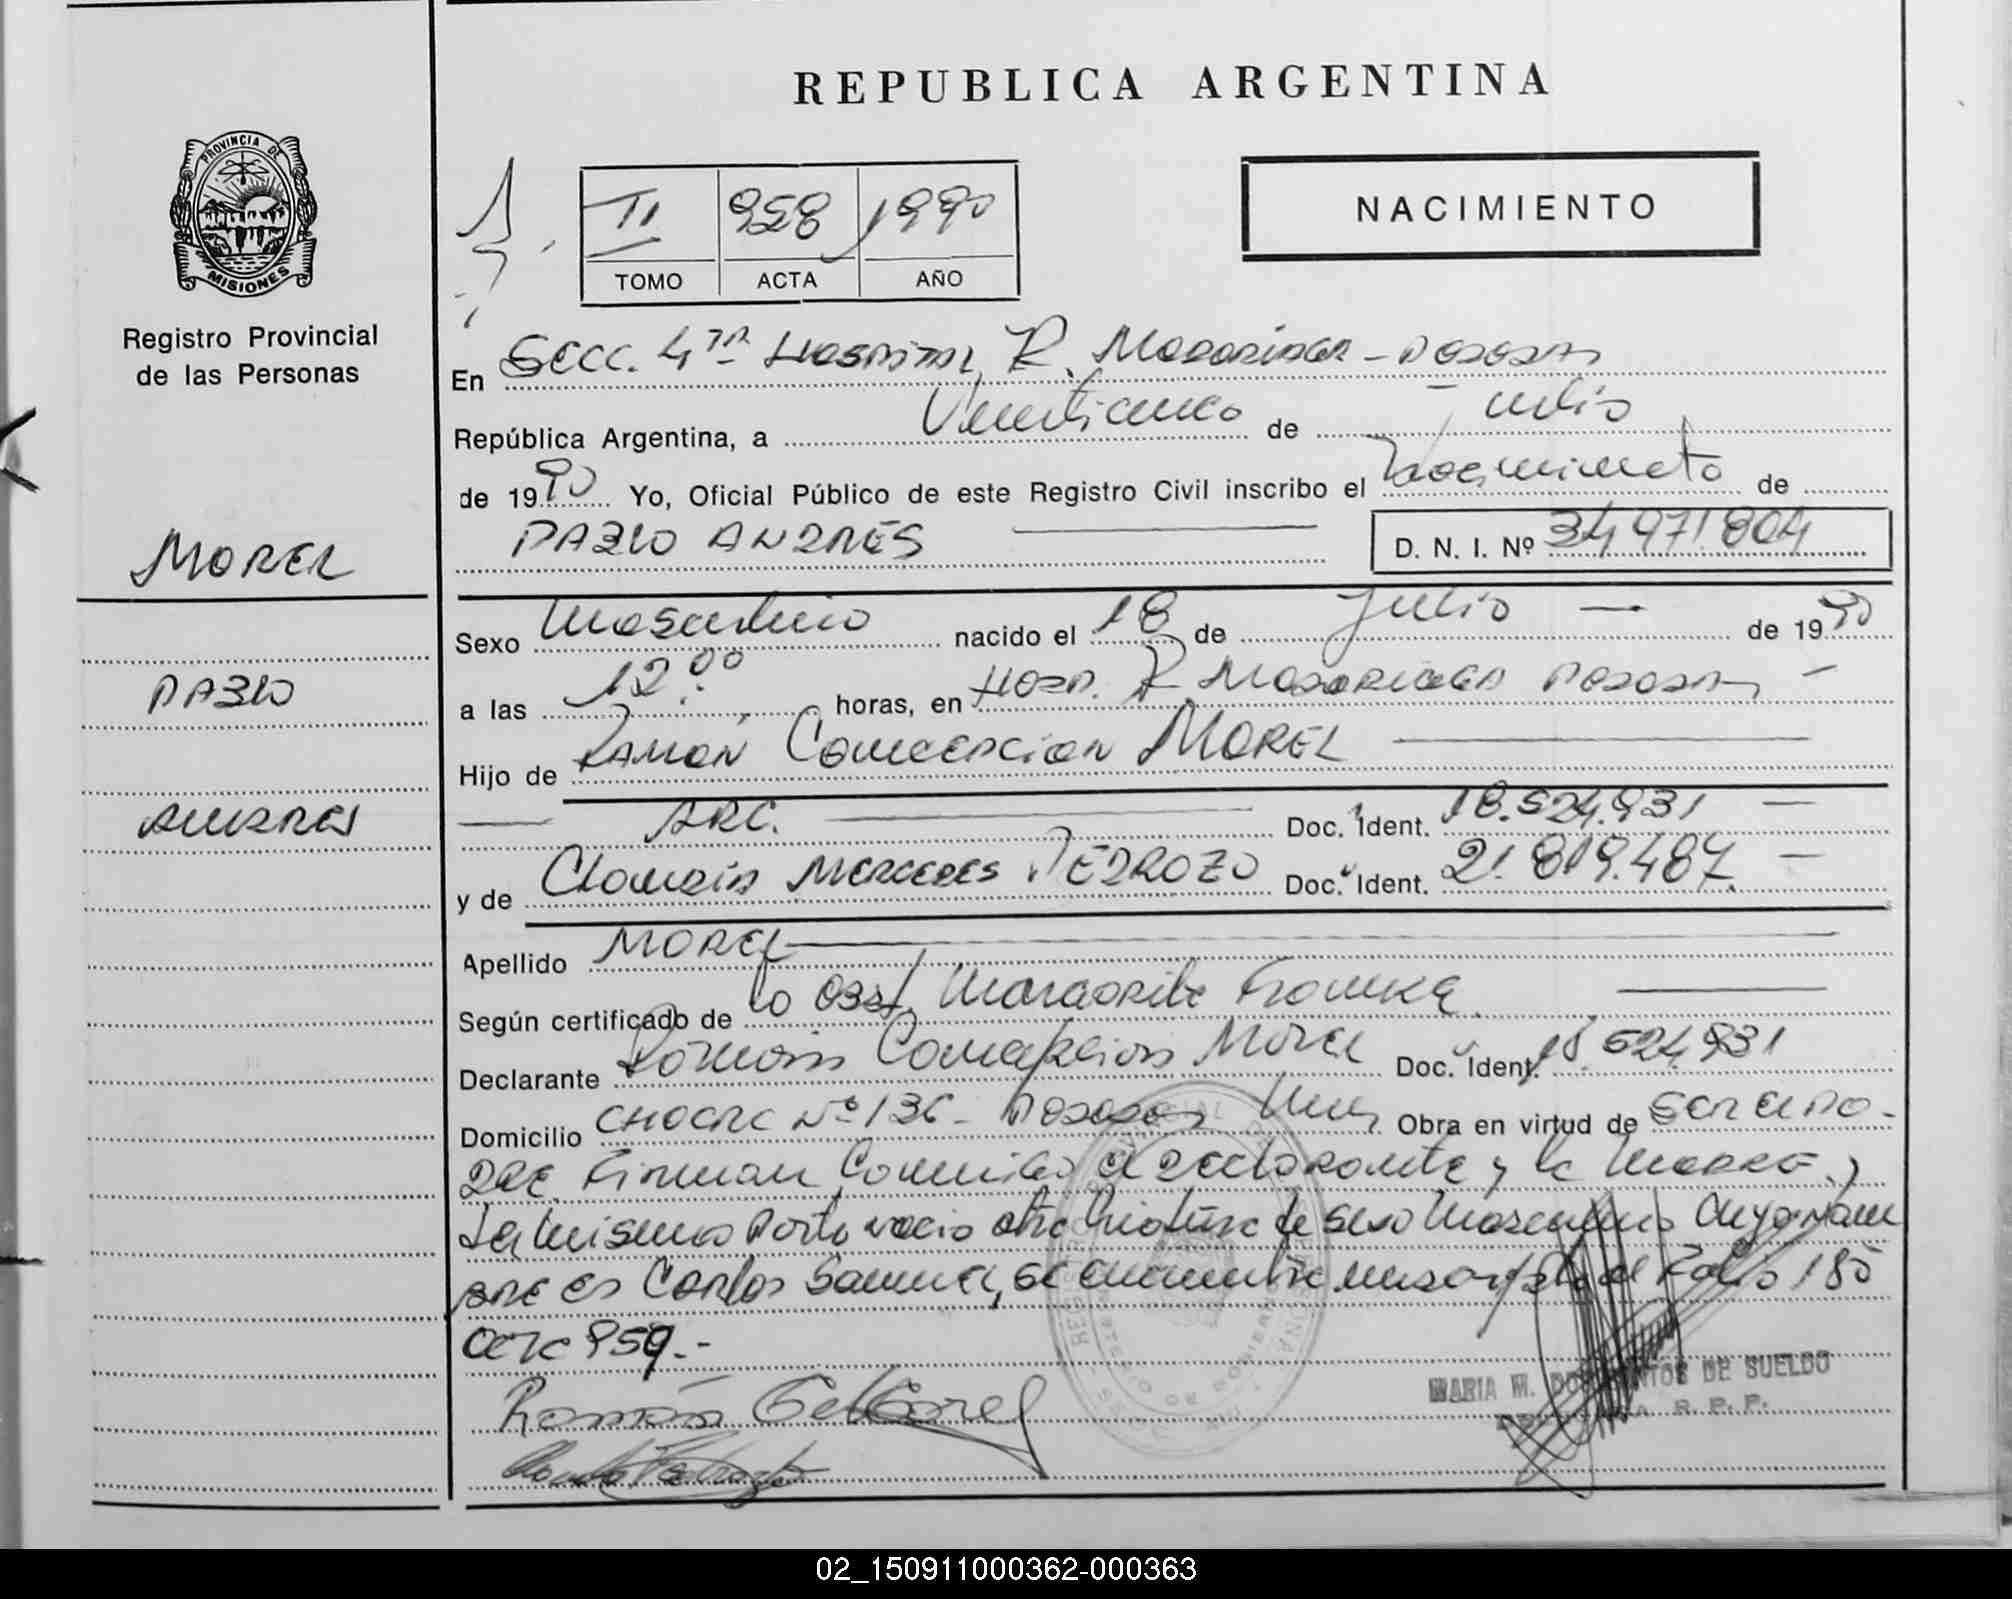 REPUBLICA ARGENTINA
PROVINCIA DE
MISIONES
Registro Provincial
de las Personas
II 958 1990
TOMO ACTA AÑO
NACIMIENTO
En Secc. 4ta Hospital R. Madariaga - Posadas
República Argentina, a Veinticinco de Julio
de 1990 Yo, Oficial Público de este Registro Civil inscribo el Nacimiento de
PABLO ANDRES D. N. I. Nº 34971804
MOREL
PABLO
ANDRES
Sexo Masculino nacido el 18 de Julio — de 1990
a las 12.00 horas, en Hosp. R. Madariaga Posadas —
Hijo de RAMON Concepcion MOREL
— ARG. — Doc. Ident. 18.524.931 —
y de Claudia MERCEDES PEDROZO Doc. Ident. 21.819.487 —
Apellido MOREL
Según certificado de la Obst. Margarita
Declarante Ramón Concepcion Morel Doc. Ident. 18.524.931
Domicilio CHACRA Nº 136 - Posadas Mnes Obra en virtud de ser el pa-
dre. Firman Conmigo el declarante y la Madre.
del mismo Parto nació otra Criatura de sexo Masculino Cuyo nom
bre es Carlos Samuel, se encuentra al Folio 185
Acta 959.-
Ramón Morel
MARIA M. DE SUELDO
R. P. P.
02_150911000362-000363